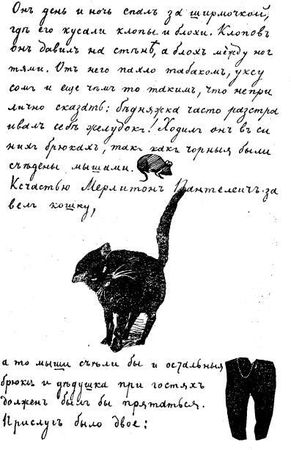 Онъ день и ночь спалъ за ширмочкой,
гдѣ его кусали клопы и блохи. Клоповъ
онъ давилъ на стѣнѣ, а блохъ между ног
тями. Отъ него пахло табакомъ, уксу
сомъ и еще чѣмъ то такимъ, что непри
лично сказать: бѣдняжка часто разстра
ивалъ себѣ желудокъ! Ходилъ онъ въ си
нихъ брюкахъ, такъ какъ чорныя были
съѣдены мышами.
Ксчастью Мерлитонъ Пантелеичъ за
велъ кошку,
а то мыши съѣли бы и остальныя
брюки и дѣдушка при гостяхъ
долженъ былъ бы прятаться.
Прислугъ было двое: